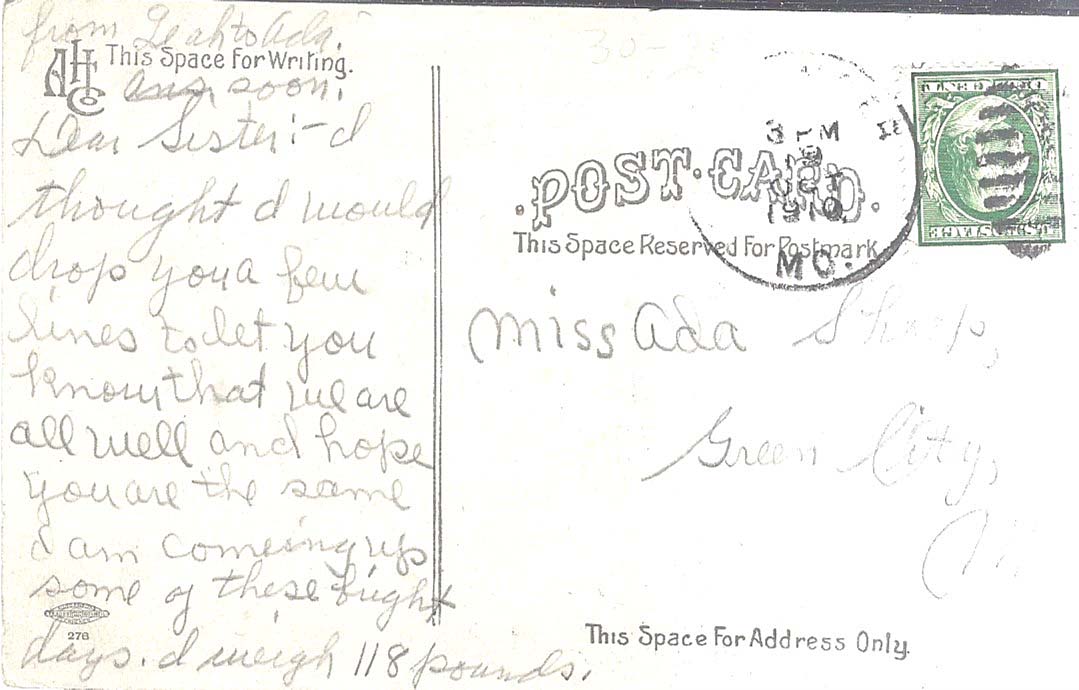 from Leah to Ada.
AHCo
This Space For Writing.
ans, soon.
Dear Sister:- I
thought I would
drop you a few
lines to let you
know that we are
all well and hope
you are the same
I am comeing up
some of these bright
days. I weigh 118 pounds.
276
30-
POST CARD.
This Space Reserved For Postmark
3 PM
OCT
1910
MO.
Miss Ada Sharp,
Green City,
This Space For Address Only.